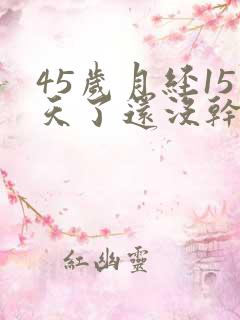 45歲月経15
天了還没幹
紅幽靈